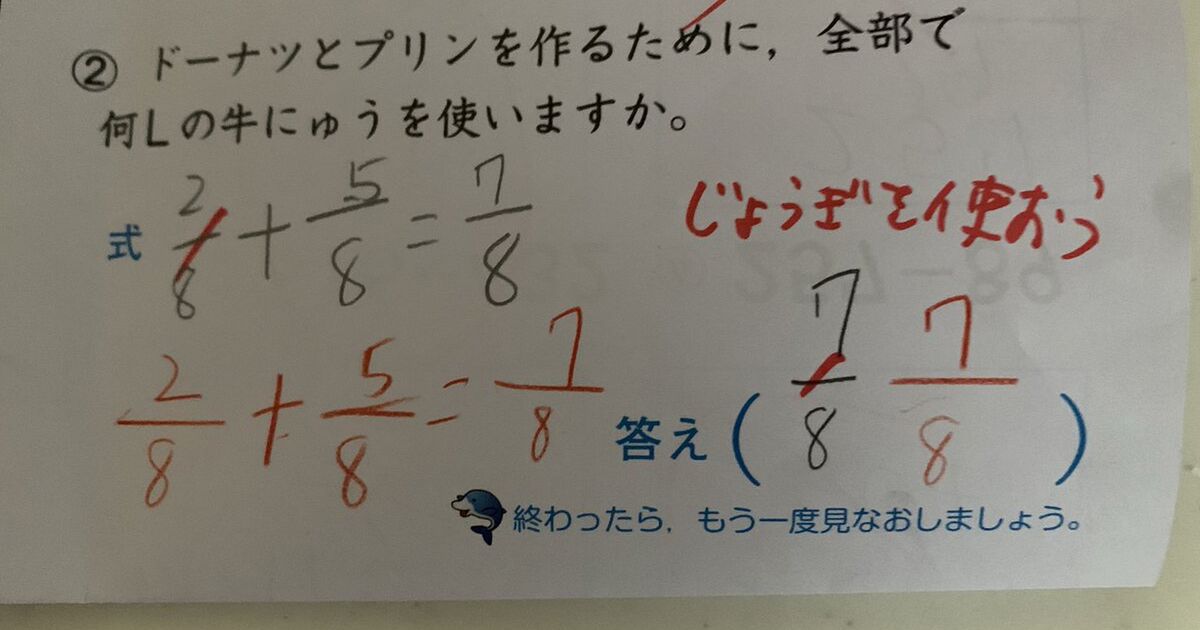 ② ドーナツとプリンを作るために，全部で
何Lの牛にゅうを使いますか。
式 2/8 + 5/8 = 7/8
じょうぎを使おう
2/8 + 5/8 = 7/8
答え ( 7/8 7/8 )
終わったら，もう一度見なおしましょう。